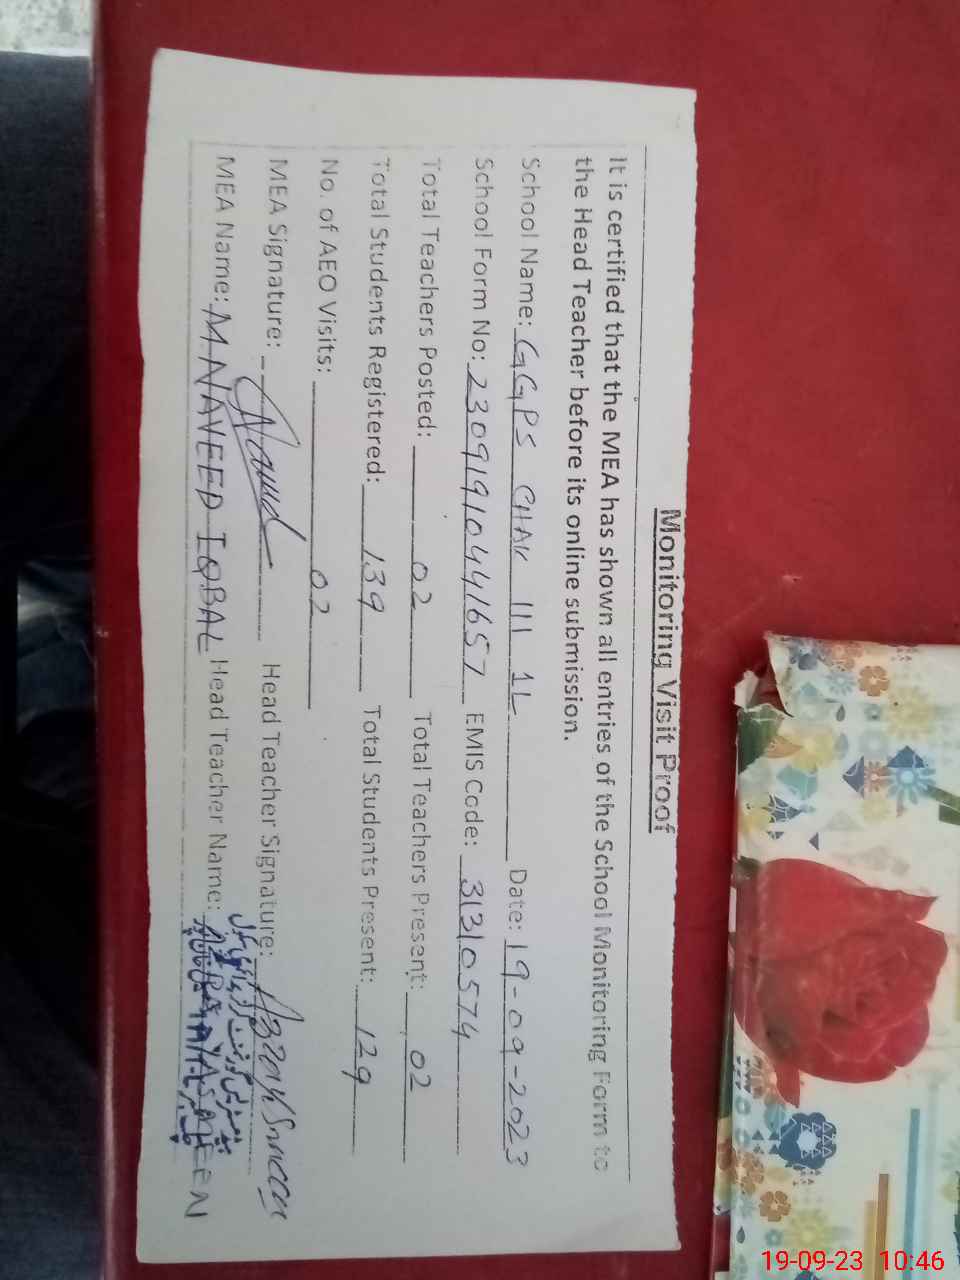 Monitoring Visit Proof
It is certified that the MEA has shown all entries of the School Monitoring Form to
the Head Teacher before its online submission.
School Name: GGPS CHAK 111 1L Date: 19-09-2023
School Form No: 23091910441657 EMIS Code: 31310574
Total Teachers Posted: 02 Total Teachers Present: 02
Total Students Registered: 139 Total Students Present: 129
No. of AEO Visits: 02
MEA Signature: Head Teacher Signature:
MEA Name: M NAVEED IQBAL Head Teacher Name: YASMEEN
19-09-23 10:46